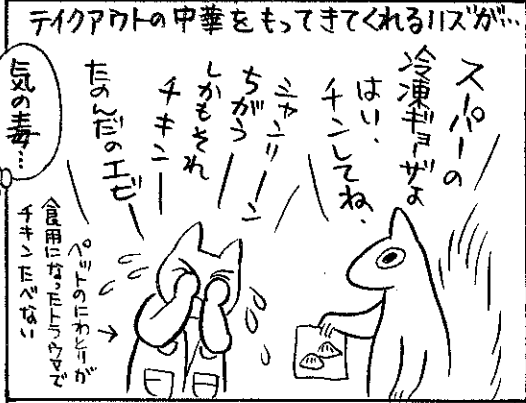 テイクアウトの中華をもってきてくれるハズが…
スーパーの
冷凍ギョーザよ
はい、
チンしてね、
シャンリーン
ちがう
しかもそれ
チキンー
たのんだのエビー
気の毒…
ペットのにわとりが
食用になったトラウマで
チキンたべない